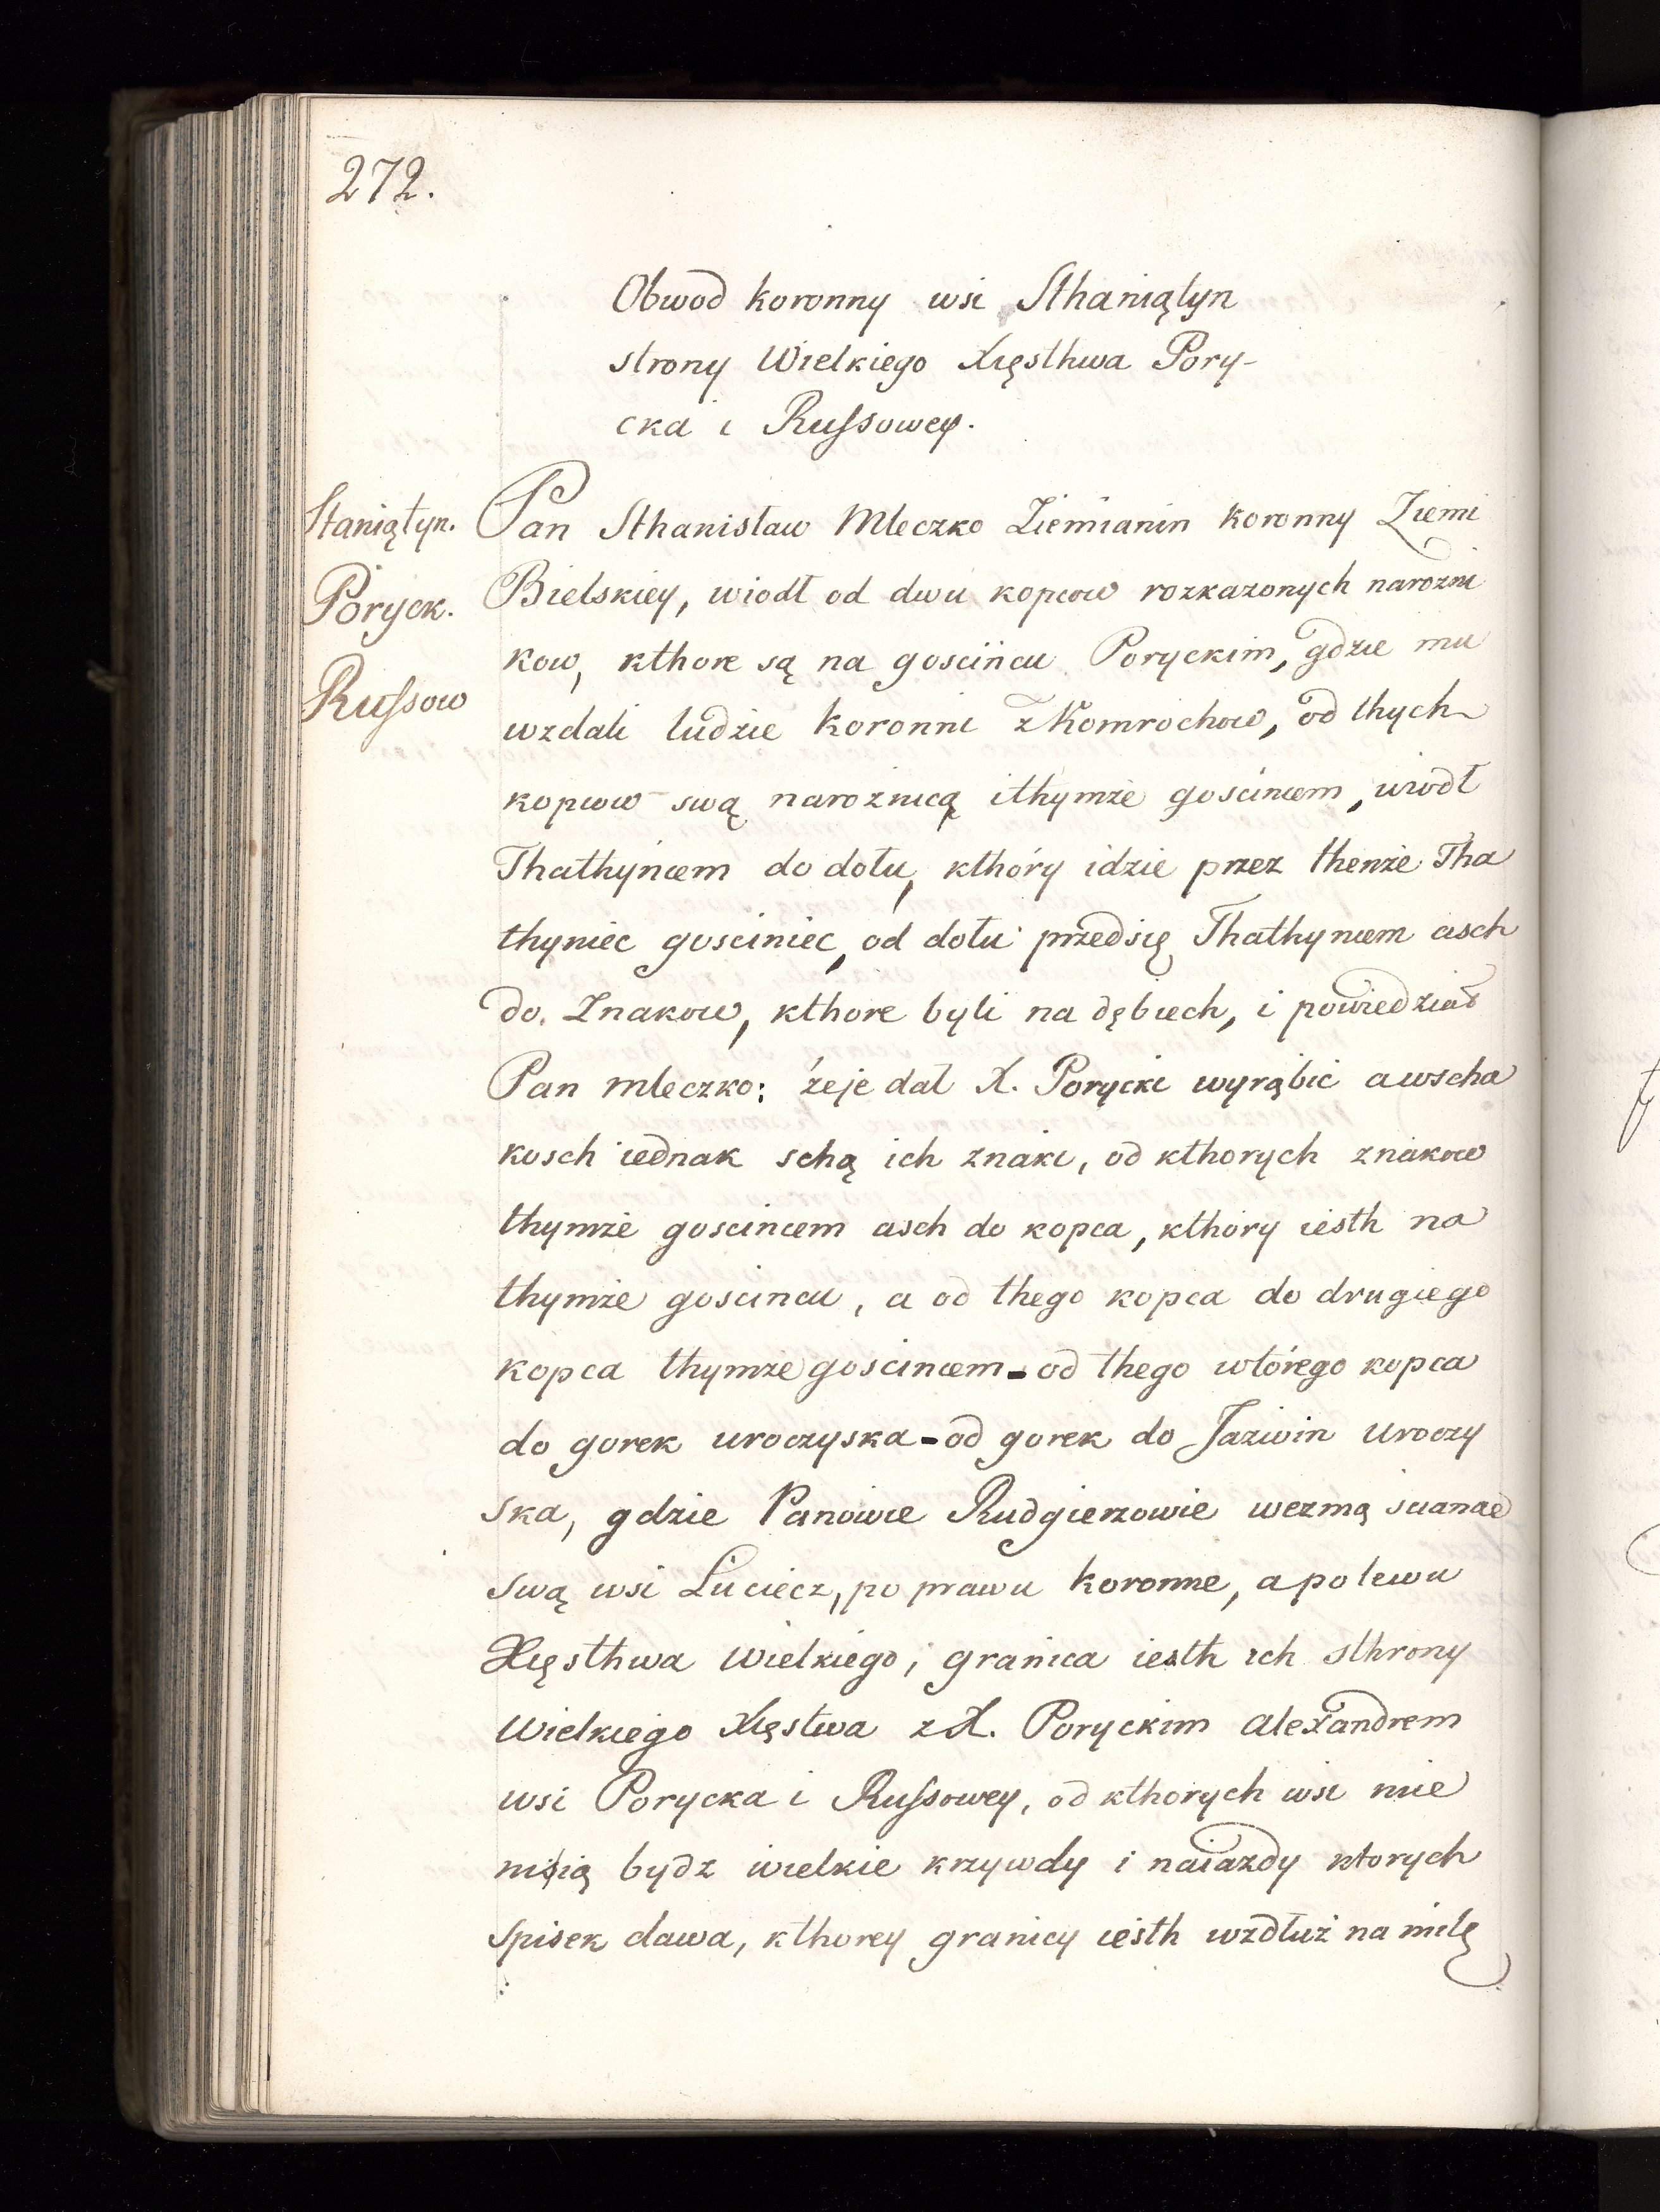 272.
Obwod koronny wsi Sthaniątyn
strony Wielkiego Xięsthwa Pory-
cka i Russowey.
Staniątyn.
Poryck.
Russow
Pan Sthanisław Mleczko Ziemianin koronny Ziemi
Bielskiey, wiodł od dwu kopcow rozkazonych narozni
kow, kthore są na goscińcu Poryckim, gdzie mu
wzdali ludzie koronni z Komrochow, od thych
kopcow swą naroznicą ithymże goscincem, wiodł
Thathyńcem do dołu, kthóry idzie przez thenże Tha
thyniec gosciniec, od dołu przedsię Thathyncem asch
do Znakow, kthore byli na dębiech, i powiedział
Pan Mleczko: żeje dał X. Porycki wyrąbić awscha
kosch iednak schą ich znaki, od kthorych znakow
thymże goscincem asch do kopca, kthóry iesth na
thymże goscincu, a od thego kopca do drugiego
kopca thymże goscincem - od thego wtórego kopca
do gorek uroczyska - od gorek do Jaziwin uroczy
ska, gdzie Panowie Rudgierzowie wezmą scianae
swą wsi Luciecz, po prawu koronne, a po lewu
Xięsthwa Wielkiego, granica iesth ich sthrony
Wielkiego Xięstwa z X. Poryckim Alexandrem
wsi Porycka i Russowey, od kthorych wsi mie
nisią bydz wielkie krzywdy i naiazdy ktorych
spisek dawa, kthorey granicy iesth wzdłuż na milę